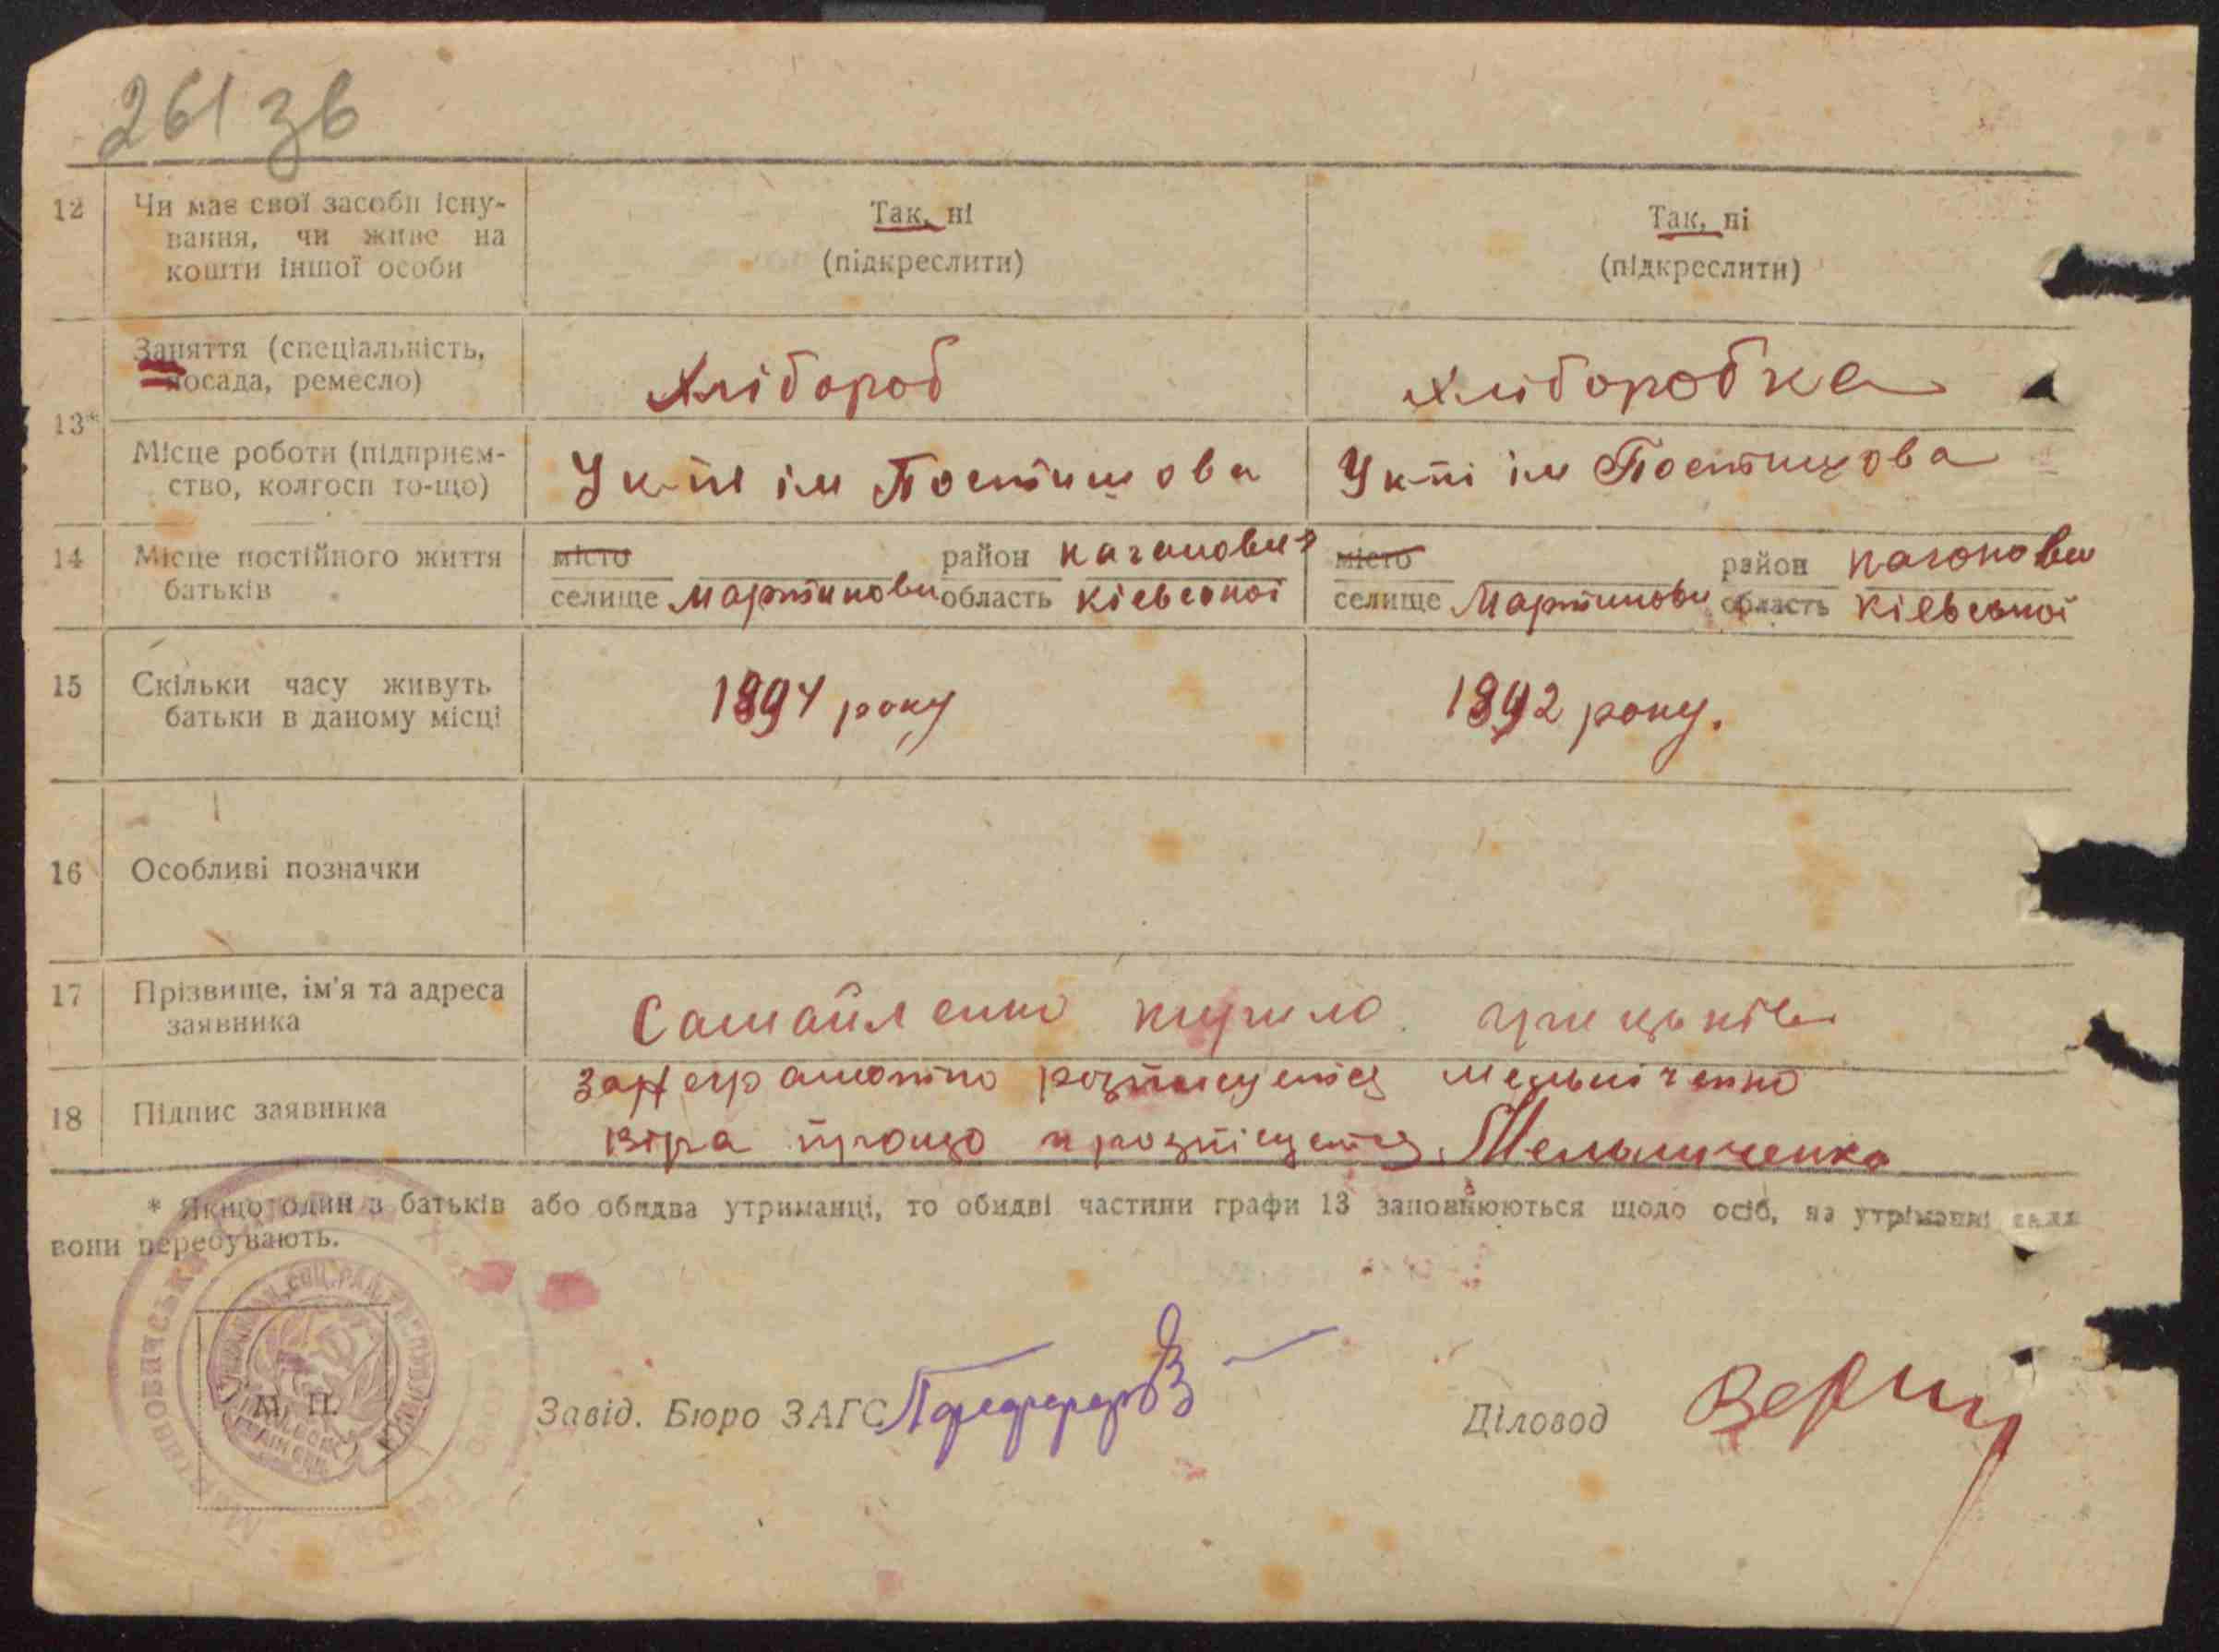 261 зв
12 Чи має свої засоби існу- Так, ні Так, ні
вання, чи живе на (підкреслити) (підкреслити)
кошти іншої особи
Заняття (спеціальність, Хлібороб Хліборобка
посада, ремесло)
13*
Місце роботи (підприєм- ім Постишова ім Постишова
ство, колгосп то-що)
14 Місце постійного життя місто район Каганович місто район Каганови
батьків селище Мартинови область Кіевської селище Мартинови область Кіевської
15 Скільки часу живуть 1894 року 1892 року.
батьки в даному місці
16 Особливі позначки
17 Прізвище, ім'я та адреса Самайленко Кирило
заявника
18 Підпис заявника розписуется Мельніченко
Віра Мельниченко
* Якщо один з батьків або обидва утриманці, то обидві частини графи 13 заповнюються щодо осіб, на утриманні яких
вони перебувають.
М. П.
Завід. Бюро ЗАГС Діловод